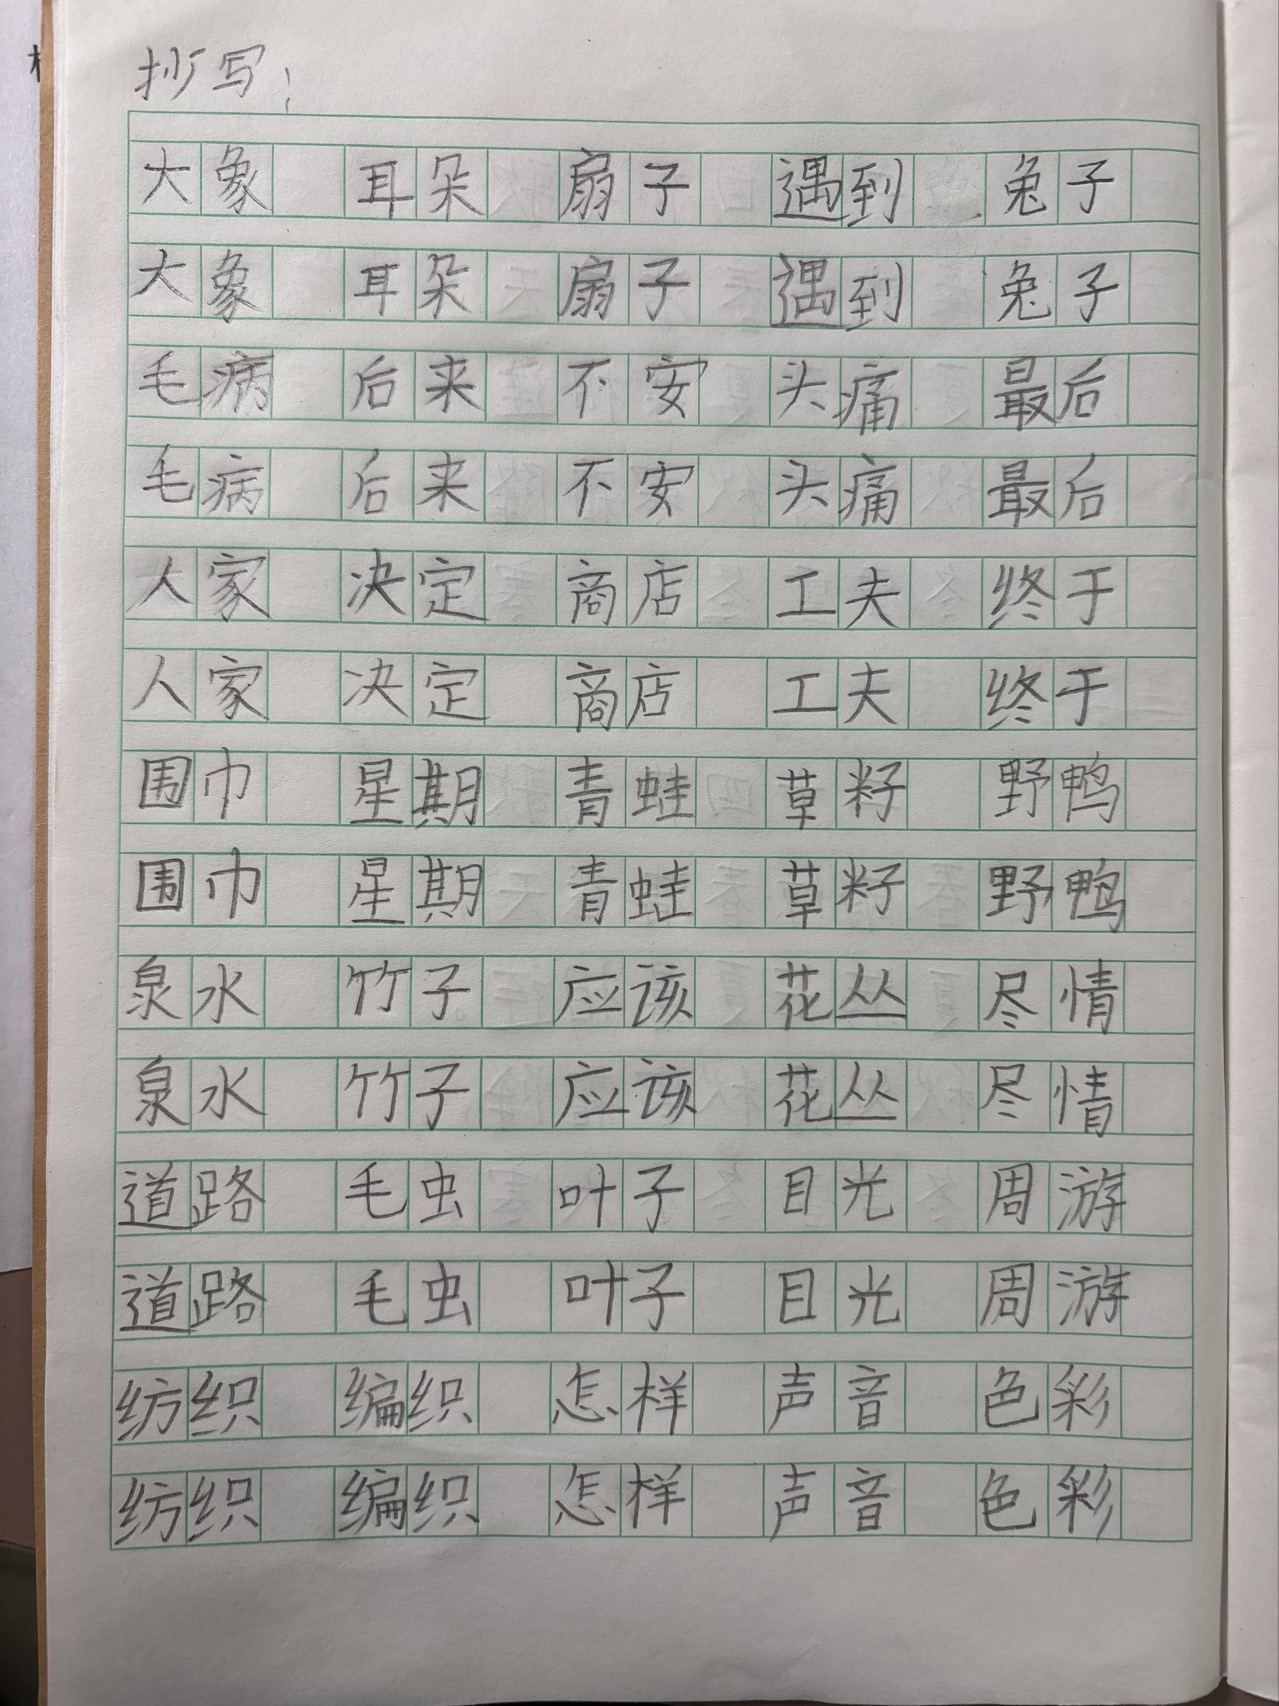 抄写:
大象 耳朵 扇子 遇到 兔子
大象 耳朵 扇子 遇到 兔子
毛病 后来 不安 头痛 最后
毛病 后来 不安 头痛 最后
人家 决定 商店 工夫 终于
人家 决定 商店 工夫 终于
围巾 星期 青蛙 草籽 野鸭
围巾 星期 青蛙 草籽 野鸭
泉水 竹子 应该 花丛 尽情
泉水 竹子 应该 花丛 尽情
道路 毛虫 叶子 目光 周游
道路 毛虫 叶子 目光 周游
纺织 编织 怎样 声音 色彩
纺织 编织 怎样 声音 色彩